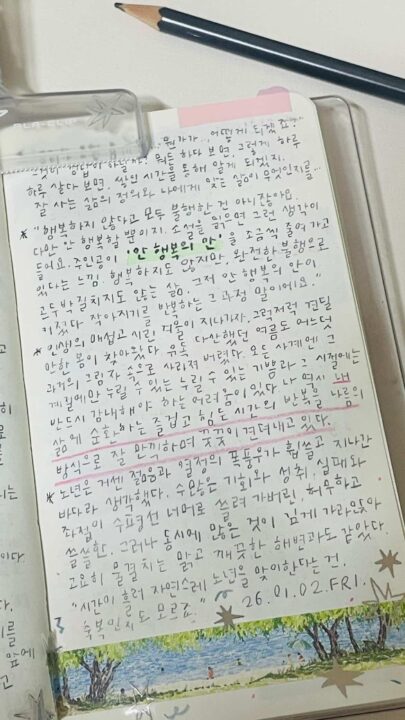 뭔가가.. 어떻게 되겠죠?
뭐든 하다 보면, 그렇게 하루
하루 살다 보면. 삶의 시간을 통해 알게 되겠지.
잘 사는 삶의 정의와 나에게 맞는 삶이 무엇인지를...
* "행복하지 않다고 모두 불행한 건 아니잖아요.
다만 안 행복할 뿐이지. 소설을 읽으면 그런 생각이
들어요. 주인공이 '안 행복의 안'을 조금씩 줄여가고
있다는 느낌. 행복하지도 않지만, 완전한 불행으로
곤두박질치지도 않는 삶. 그저 안 행복의 안이
커졌다 작아지기를 반복하는 그 과정 말이에요."
* 인생의 매섭고 시린 겨울이 지나가자, 그럭저럭 견딜
만한 봄이 찾아왔다. 유독 다산했던 여름도 어느덧
과거의 그림자 속으로 사라져 버렸다. 모든 사계에 그
계절에만 누릴 수 있는 기쁨과 그 시절에는
반드시 감내해야 하는 어려움이 있다. 나 역시 내
삶에 순환하는 즐겁고 힘든 시간의 반복을 나름의
방식으로 잘 만끽하며 꿋꿋이 견뎌내고 있다.
* 노년은 거센 젊음과 열정의 폭풍우가 휩쓸고 지나간
바다라 생각했다. 수많은 기회와 성취, 실패와
좌절이 수평선 너머로 쓸려 가버린, 허무하고
쓸쓸한. 그러나 동시에 많은 것이 깊게 가라앉아
고요히 물결치는 맑고 깨끗한 해변과도 같았다.
"시간이 흘러 자연스레 노년을 맞이한다는 건,
축복인지도 모르죠."
26.01.02.FRI.